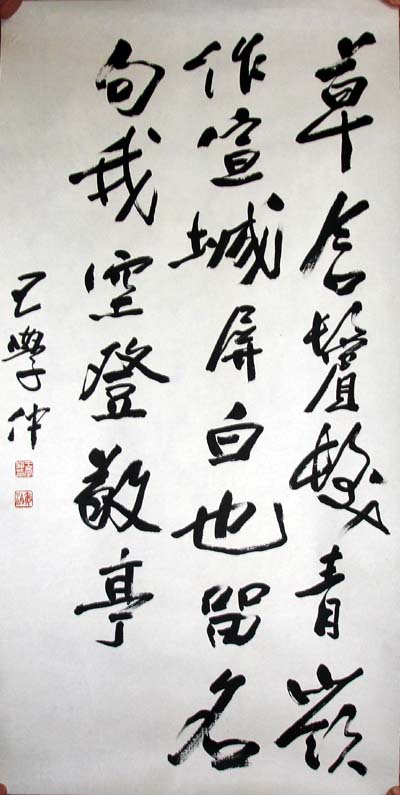 草含鬢髮青嶺
作宣城屏白也留名
句我登敬亭
王學仲